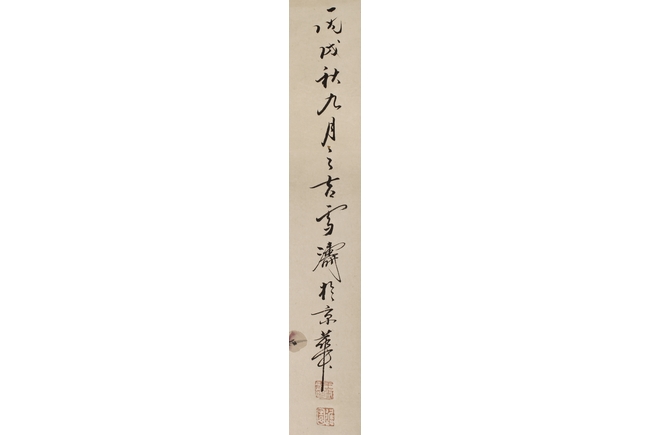 丙戌秋九月之吉雪濤於京華